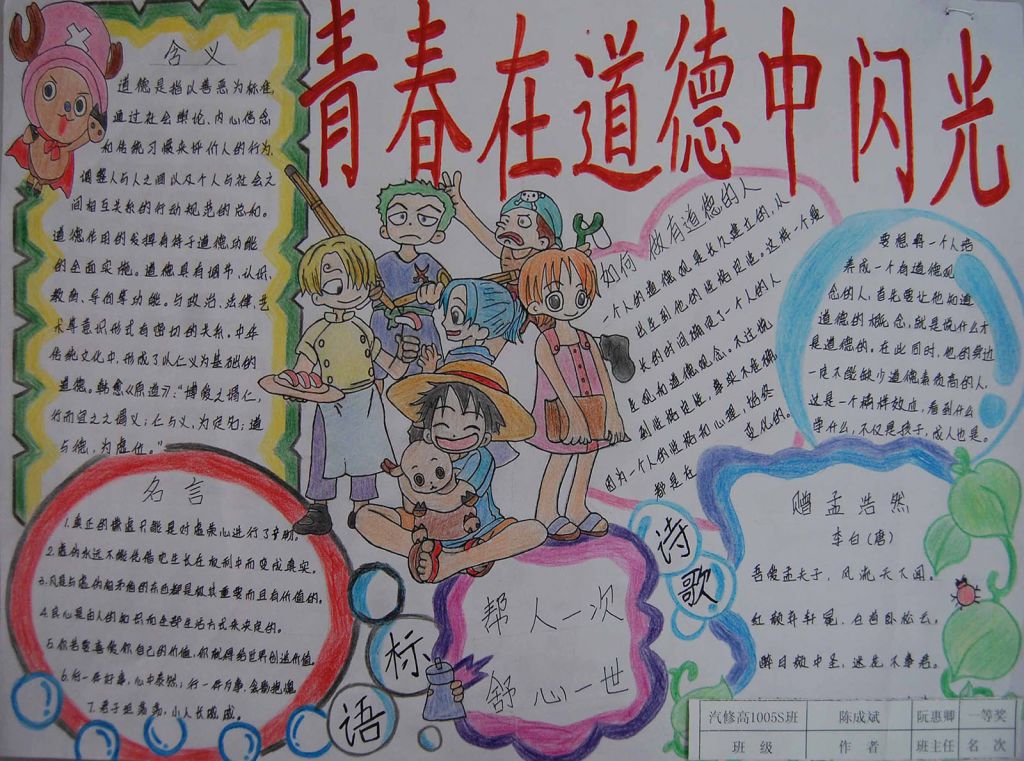 青春在道德中闪光
含义
道德是指以善恶为标准,
通过社会舆论、内心信念
和传统习惯来评价人的行为,
调整人与人之间以及个人与社会之
间相互关系的行动规范的总和。
道德作用的发挥有待于道德功能
的全面实施。道德具有调节、认识、
教育、导向等功能。与政治、法律、艺
术等意识形式有密切的关系。中华
传统文化中,形成了以仁义为基础的
道德。韩愈《原道》:“博爱之谓仁,
行而宜之之谓义;仁与义,为定名;道
与德,为虚位。”
如何做有道德的人
一个人的道德观是长久建立的,从
长的时间确定了一个人的人
生观和道德观念。不过说
到性格
因为一个人的性格和心理,始终
都是在
变化的。
要想将一个人培
养成一个有道德观
念的人,首先要让他知道
道德的概念,就是说什么才
是道德的。在此同时,他的身边
一定不能缺少道德素质高的人,
这是一个榜样效应,看到什么
学什么,不仅是孩子,成人也是。
名言
1.真正的谦虚只能是对虚荣心进行了
2.虚伪永远不能凭借它生长在权利中而变成真实。
3.凡是与虚伪相矛盾的东西都是极其重要而且有价值的。
4.良心是由人的知识和全部生活方式来决定的。
5.你若要喜爱你自己的价值,你就得给世界创造价值。
6.行一件好事,心中泰然;行一件歹事,
7.君子坦荡荡,小人长戚戚。
标语
帮人一次
舒心一世
诗歌
赠孟浩然
李白(唐)
吾爱孟夫子,风流天下闻。
红颜弃轩冕,白首卧松云。
醉月频中圣,迷花不事君。
汽修高1005S班 陈成斌 阮惠卿 一等奖
班 级 作 者 班主任 名 次